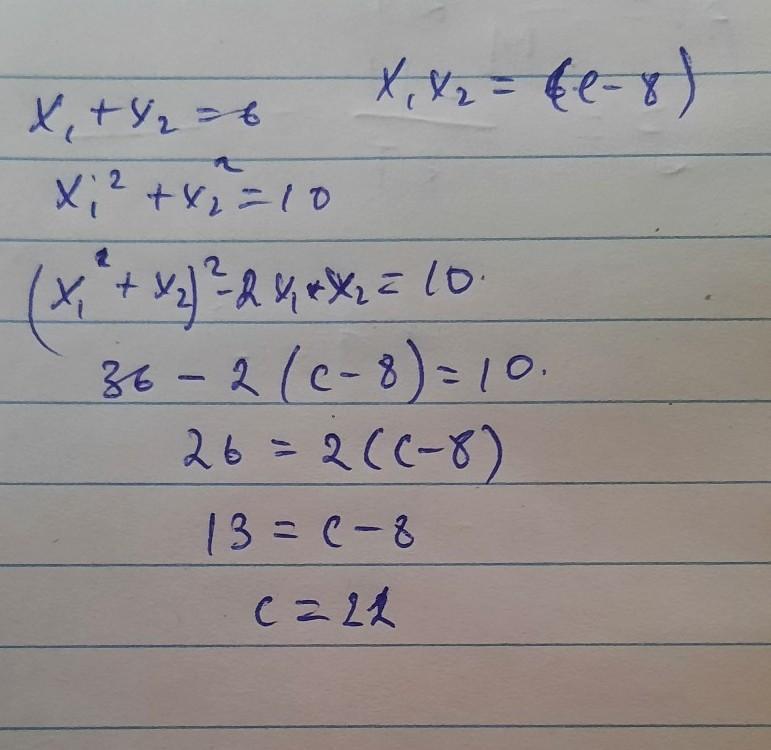 x₁ + x₂ = 6 x₁x₂ = (c - 8)
x₁² + x₂² = 10
(x₁² + x₂)² - 2x₁ * x₂ = 10.
36 - 2(c - 8) = 10.
26 = 2(c - 8)
13 = c - 8
c = 21